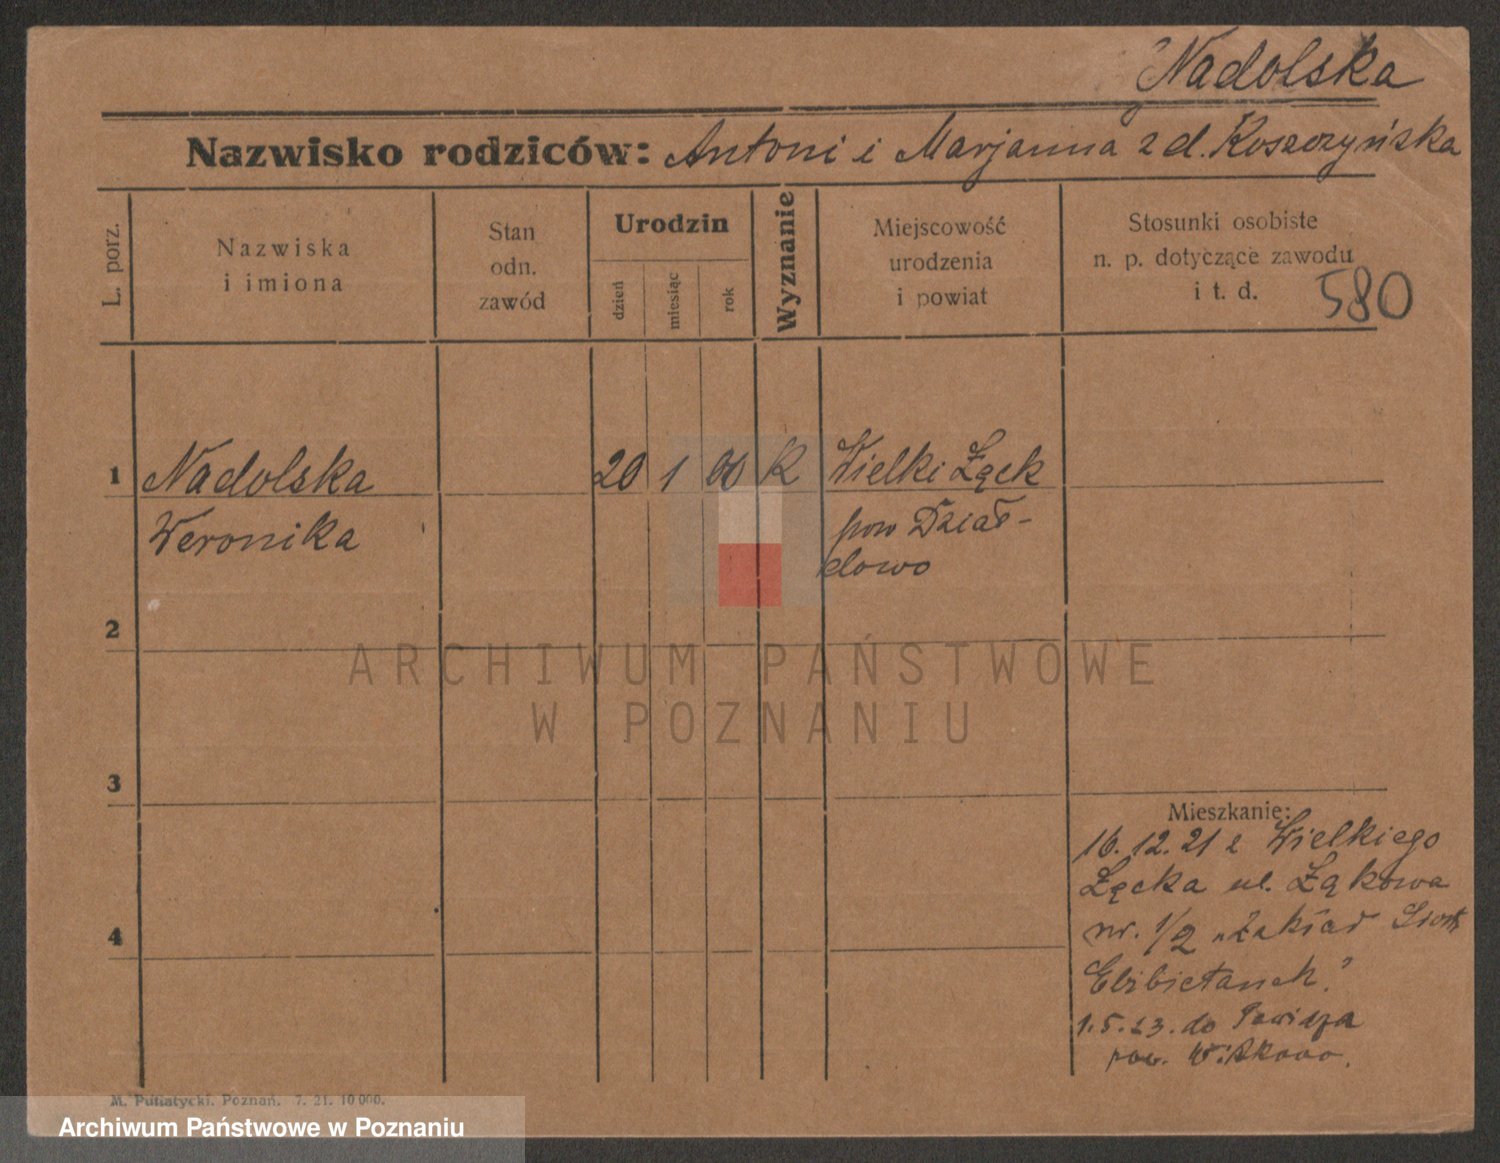 Nadolska
Nazwisko rodziców: Antoni i Marjanna z d. Koszczyńska
L. porz.
Nazwiska
i imiona
Stan
odn.
zawód
Urodzin
dzień
miesiąc
rok
Wyznanie
Miejscowość
urodzenia
i powiat
Stosunki osobiste
n. p. dotyczące zawodu
i t. d.
580
1 Nadolska 20 1 00 K Wielki Łęck
Weronika pow Dział-
dowo
2
ARCHIWUM PAŃSTWOWE
W POZNANIU
3
Mieszkanie:
16.12.21 z Wielkiego
Łęcka ul. Łąkowa
4 nr. 1/2 „Zakład Siostr
Elżbietanek"
1.5.23. do Powidza
pow. Witkowo.
M. Putiatycki. Poznań. 7. 21. 10000.
Archiwum Państwowe w Poznaniu